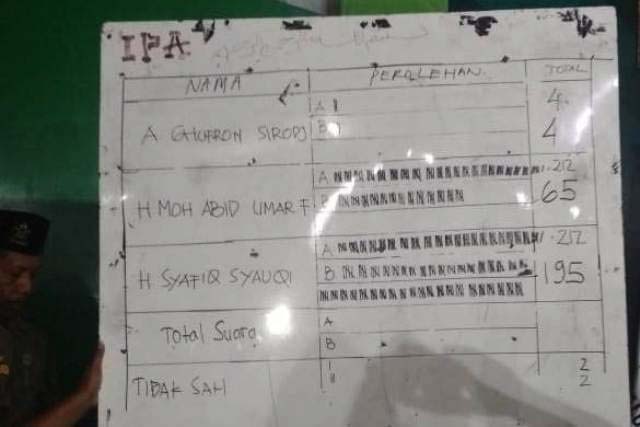 IPA
NAMA PEROLEHAN TOTAL
A GHUFRON SIRODJ A 4
B 4
H MOH ABID UMAR F A 212
B 65
H SYAFIQ SYAUQI A 212
B 195
Total Suara A
B
TIDAK SAH I 2
II 2